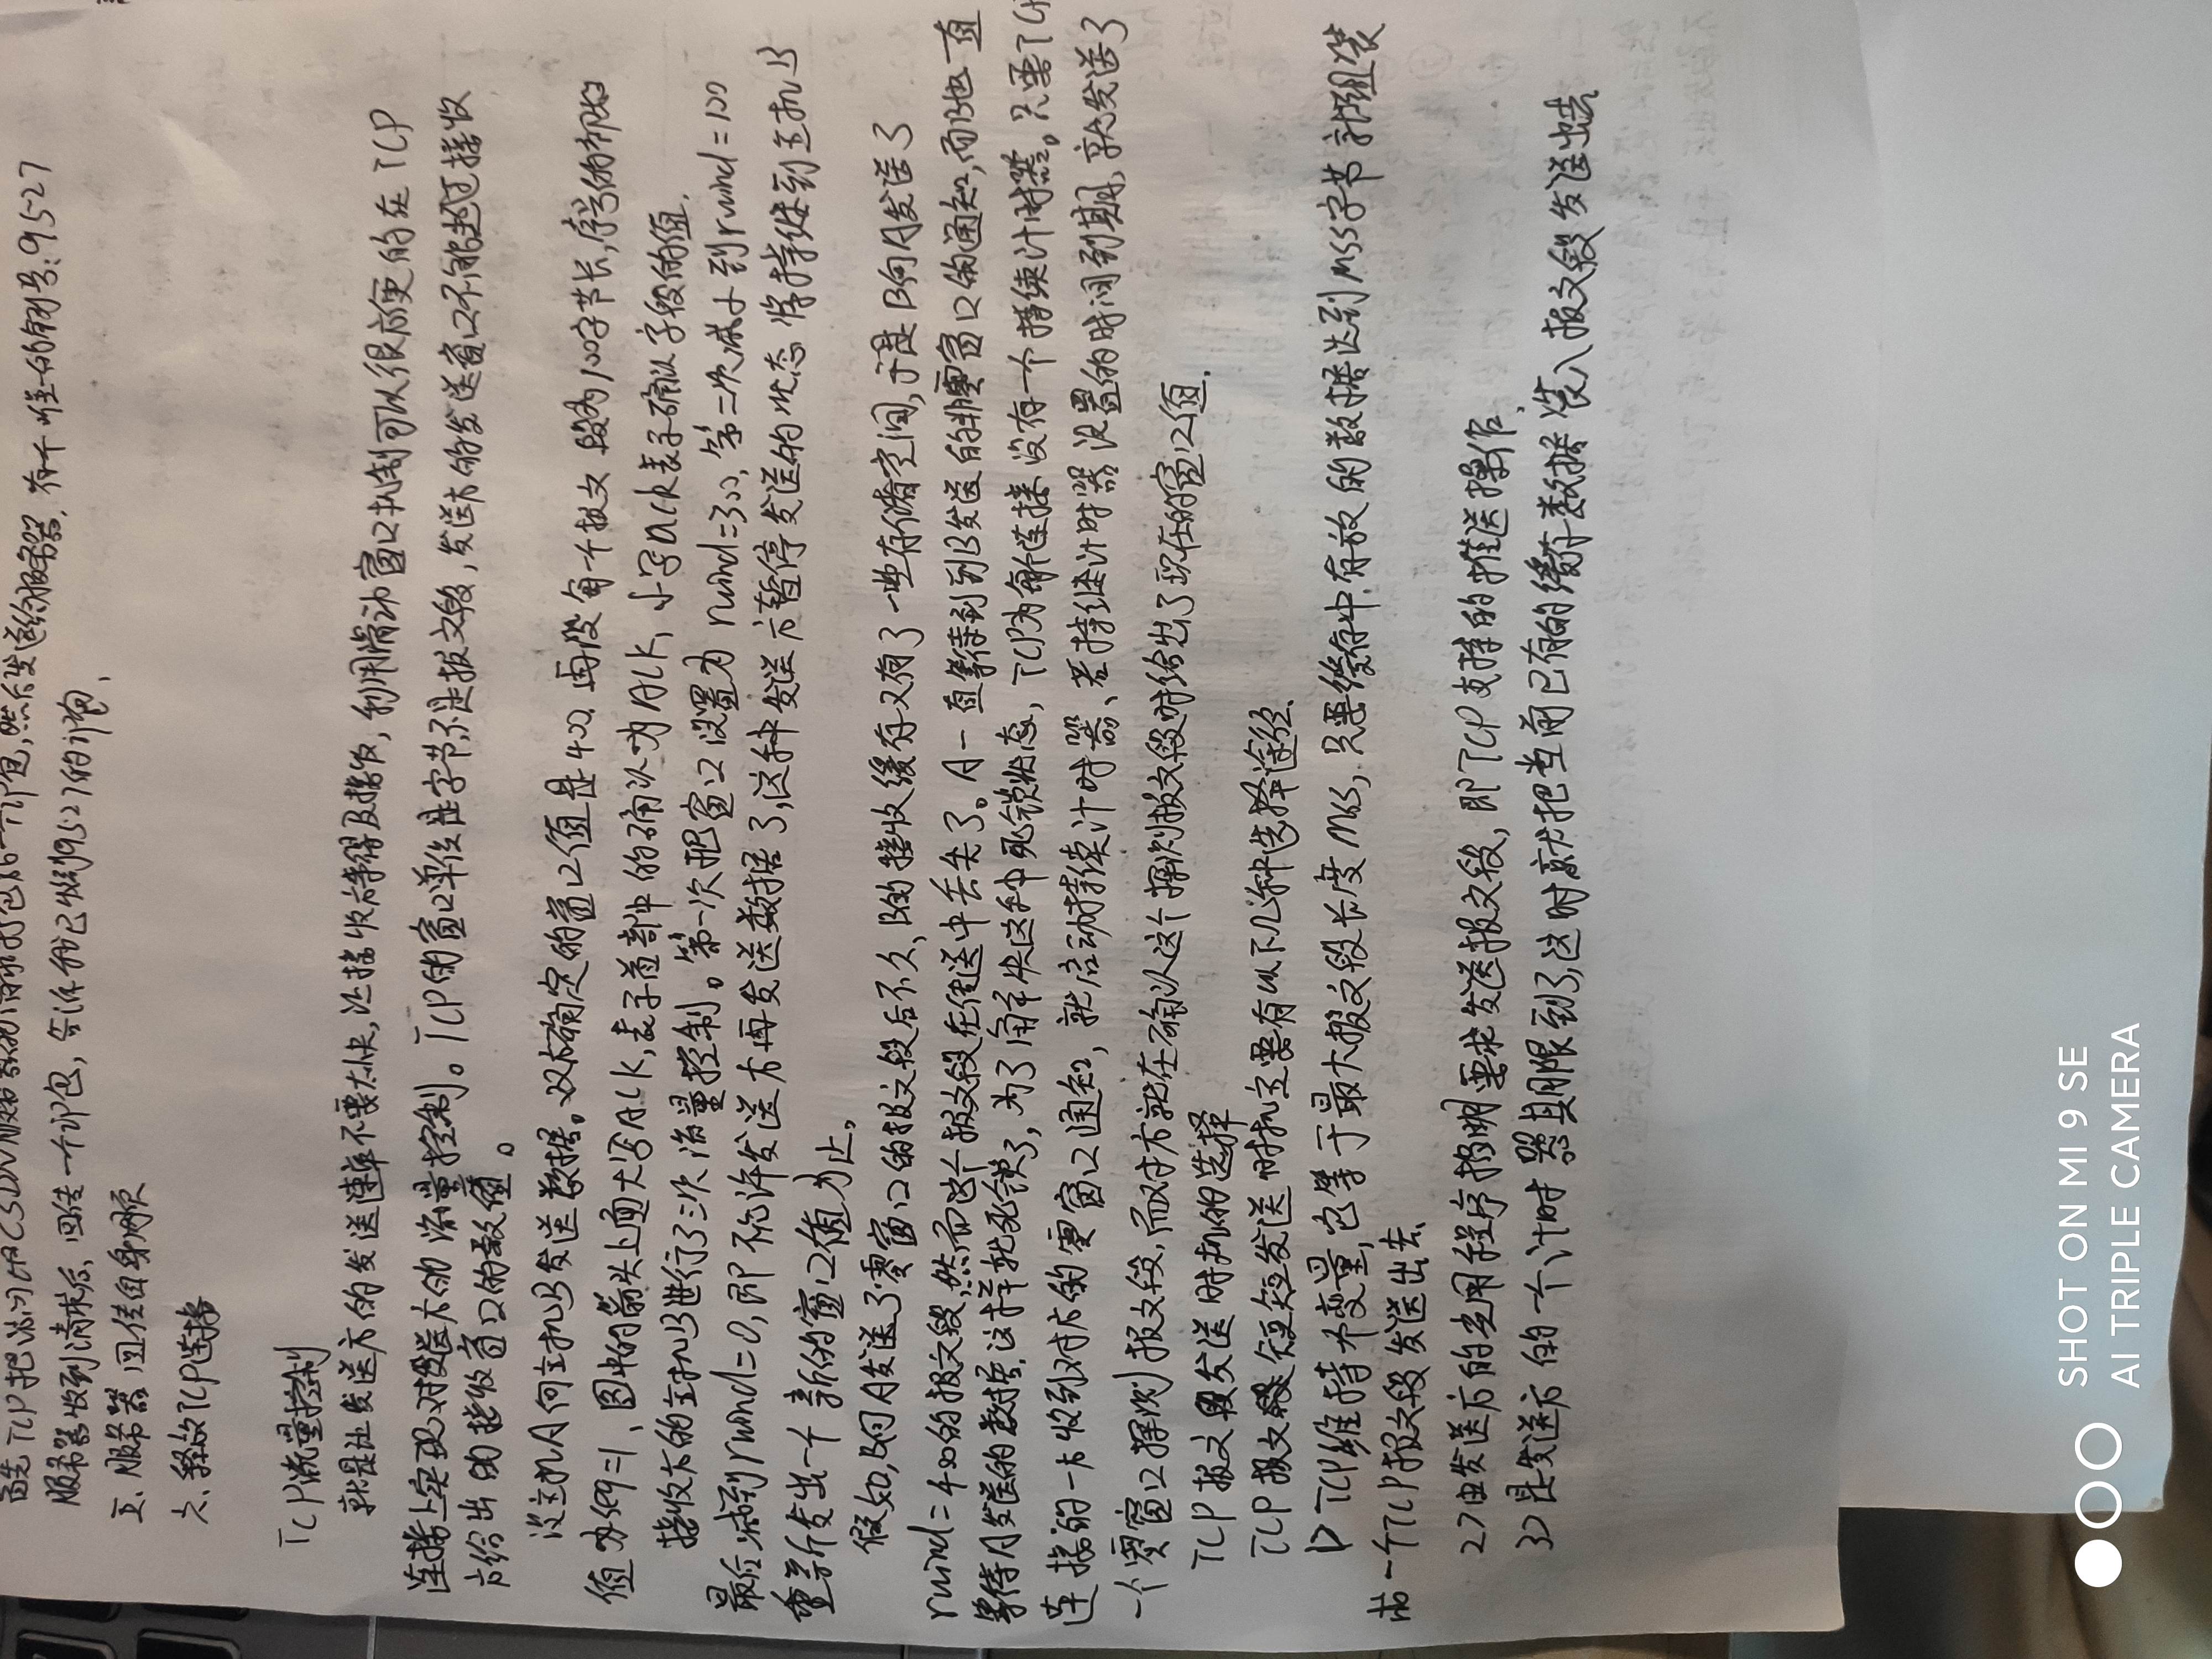 首先TCP把访问CSDN服务器的请求打包为一个包,然后发送给服务器,有个唯一的序列号:9527
服务器收到请求后,回传一个包,告诉我已收到9527的包,
五、服务器回传自身网页
六、释放TCP连接
TCP流量控制
就是让发送方的发送速率不要太快,让接收方来得及接收,利用滑动窗口机制可以很方便的在TCP
连接上实现对发送方的流量控制。TCP的窗口单位是字节,不是报文段,发送方的发送窗口不能超过接收
方给出的接收窗口的数值。
设主机A向主机B发送数据。双方确定的窗口值是400.再设每一个报文段为100字节长,序号的初始
值为seq=1、图中的箭头上面大写ACK,表示首部中的确认为ACK,小写ack表示确认字段的值.
接收方的主机B进行了三次流量控制。第一次把窗口设置为rwind=300,第二次减小到rwind=100
最后减到rwind=0,即不允许发送方再发送数据了,这种发送方暂停发送的状态将持续到主机B
重新发出一个新的窗口值为止。
假如,B向A发送了零窗口的报文段后不久,B的接收缓存又有了一些存储空间,于是B向A发送了
rwind=400的报文段,然而这个报文段在传送中丢失了。A一直等待到到B发送的非零窗口的通知,而B也一直
等待A发送的数据.这样就死锁了,为了解决这种死锁状态,TCP为每个连接设有一个持续计时器。只要TCP
连接的一方收到对方的零窗口通知,就启动持续计时器、若持续计时器设置的时间到期,就发送了
一个零窗口探测报文段,而对方就在确认这个探测报文段时给出了现在的窗口值.
TCP报文段发送时机的选择
TCP报文段短短发送时机主要有以下几种选择途径.
1>TCP维持一个变量,它等于最大报文段长度MSS,只要缓存中存放的数据达到MSS字节就组装
成一个TCP报文段发送出去
2>由发送方的应用程序指明要求发送报文段,即TCP支持的推送操作,
3>是发送方的一个计时器期限到了,这时就把当前已有的缓存数据装入报文段发送出去
SHOT ON MI 9 SE
AI TRIPLE CAMERA